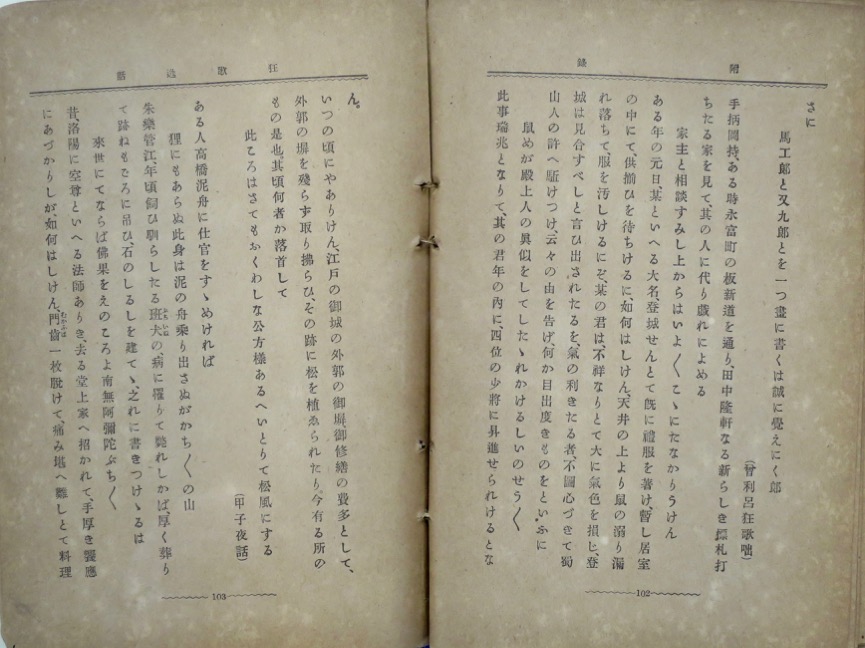 附錄
さに
馬工郎と又九郎とを一つ畫に書くは誠に覺えにく郎
(曾利呂狂歌咄)
手柄岡持、ある時永富町の板新道を通り、田中隆軒なる新らしき標札打
ちたる家を見て、其の人に代り戯れによめる
家主と相談すみし上からはいよ〱こゝにたなかりうけん
ある年の元日、某といへる大名、登城せんとて旣に禮服を著け、暫し居室
の中にて、供揃ひを待ちけるに、如何はしけん、天井の上より鼠の溺り漏
れ落ちて、服を汚しけるにぞ、某の君は、不祥なりとて大に氣色を損じ、登
城は見合すべしと言ひ出されたるを、氣の利きたる者、不圖心づきて蜀
山人の許へ駈けつけ、云々の由を告げ、何か目出度きものをといふに
鼠めが殿上人の眞似をしてしたゝれかけるしいのせう〱
此事瑞兆となりて、其の君年の内に、四位の少將に昇進せられけるとな
102
狂歌逸話
ん。
いつの頃にやありけん、江戸の御城の外郭の御塀、御修繕の費多として、
外郭の塀を殘らず取り拂らひ、その跡に松を植ゑられたり、今有る所の
もの是也。其頃何者か落首して
此ころはさてもおくわしな公方樣あるへいとりて松風にする
(甲子夜話)
ある人高橋泥舟に仕官をすゝめければ
狸にもあらぬ此身は泥の舟乘り出さぬがかち〱の山
朱樂管江、年頃飼ひ馴らしたる斑犬の、病に罹りて斃れしかば、厚く葬り
て跡ねもごろに吊ひ、石のしるしを建てゝ、之れに書きつけゝるは
來世にてならば佛果をえのころよ南無阿彌陀ぶち〱
昔、洛陽に空尊といへる法師ありき、去る堂上家へ招かれて、手厚き饗應
にあづかりしが、如何はしけん、門齒一枚脫けて、痛み堪へ難しとて料理
103